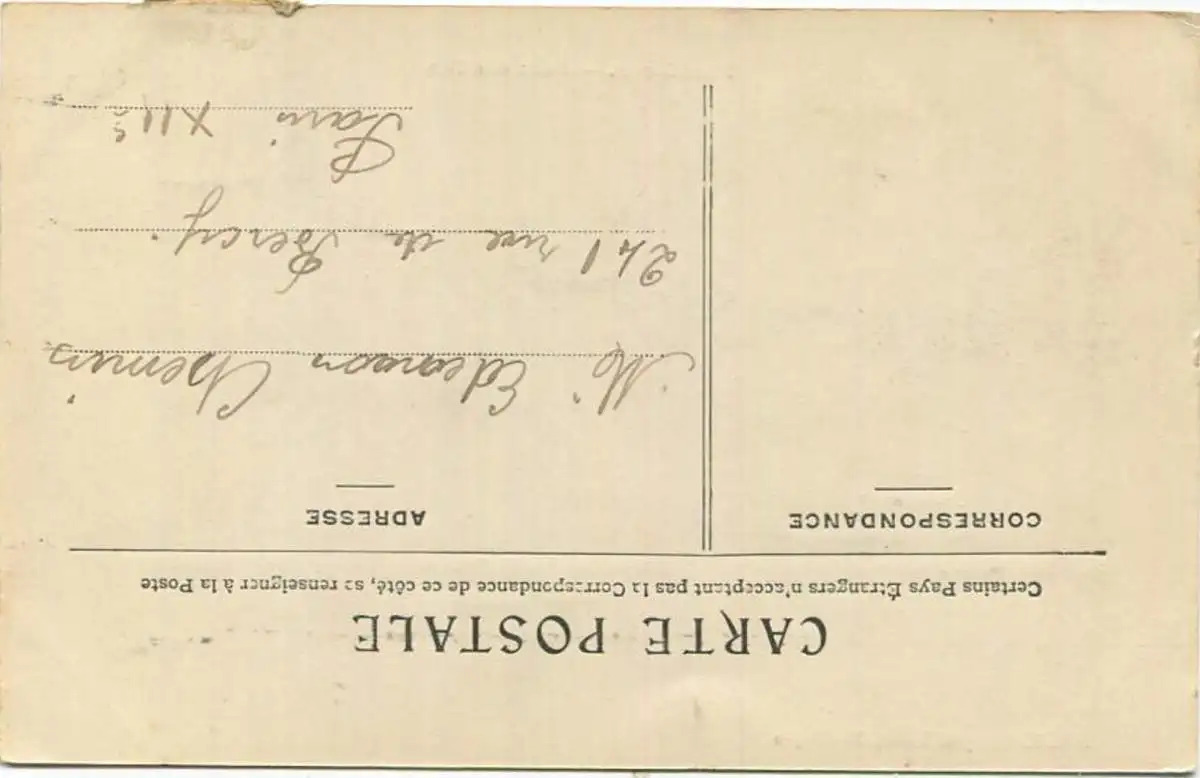 CARTE POSTALE
Certains Pays Étrangers n'acceptant pas la Correspondance de ce côté, se renseigner à la Poste
CORRESPONDANCE
ADRESSE
Mr
241 rue de Bercy
Paris XIIe